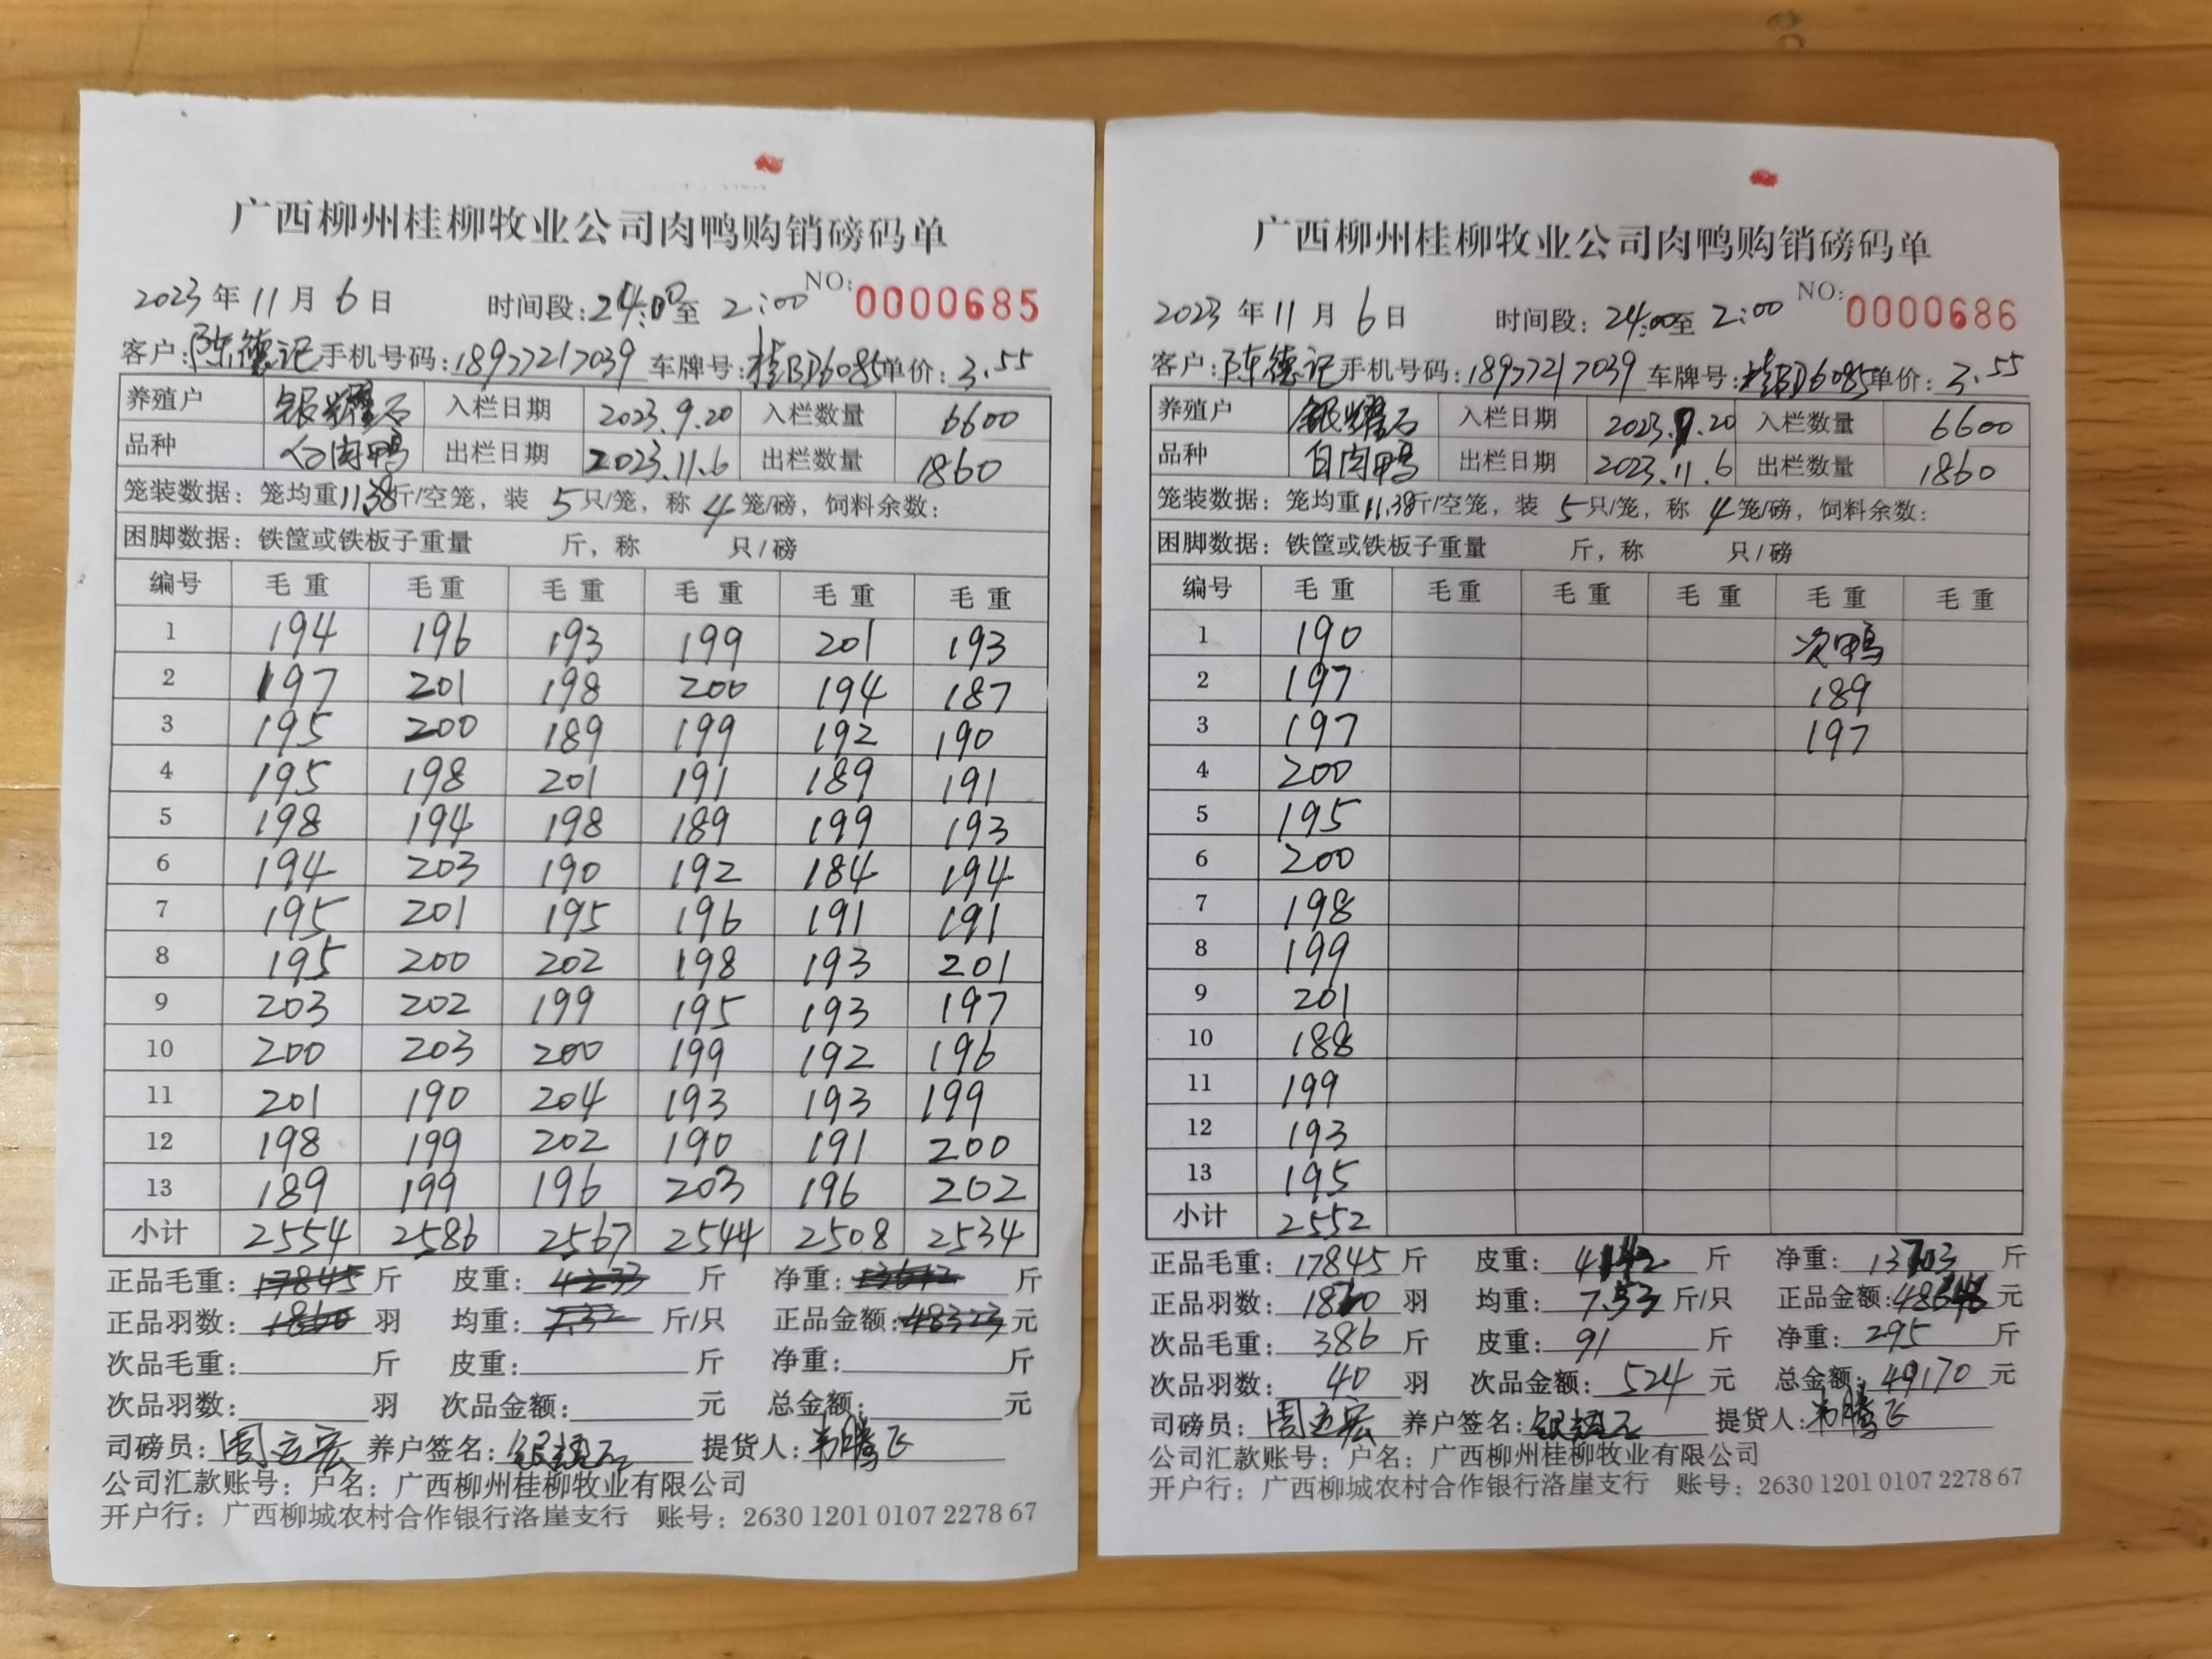 广西柳州桂柳牧业公司肉鸭购销磅码单
2023年11月6日 时间段:24:00至2:00 NO:0000685
客户:陈德记 手机号码:18977217039 车牌号:桂BD6085 单价:3.55
养殖户 银耀石 入栏日期 2023.9.20 入栏数量 6600
品种 白肉鸭 出栏日期 2023.11.6 出栏数量 1860
笼装数据:笼均重11.38斤/空笼,装5只/笼,称4笼/磅,饲料余数:
困脚数据:铁筐或铁板子重量 斤,称 只/磅
编号 毛重 毛重 毛重 毛重 毛重 毛重
1 194 196 193 199 201 193
2 197 201 198 200 194 187
3 195 200 189 199 192 190
4 195 198 201 191 189 191
5 198 194 198 189 199 193
6 194 203 190 192 184 194
7 195 201 195 196 191 191
8 195 200 202 198 193 201
9 203 202 199 195 193 197
10 200 203 200 199 192 196
11 201 190 204 193 193 199
12 198 199 202 190 191 200
13 189 199 196 203 196 202
小计 2554 2586 2567 2544 2508 2534
正品毛重:17845斤 皮重:4233斤 净重:13612斤
正品羽数:1860羽 均重:7.32斤/只 正品金额:48323元
次品毛重: 斤 皮重: 斤 净重: 斤
次品羽数: 羽 次品金额: 元 总金额: 元
司磅员:周立宏 养户签名:银耀石 提货人:韦腾飞
公司汇款账号:户名:广西柳州桂柳牧业有限公司
开户行:广西柳城农村合作银行洛崖支行 账号:2630 1201 0107 2278 67
广西柳州桂柳牧业公司肉鸭购销磅码单
2023年11月6日 时间段:24:00至2:00 NO:0000686
客户:陈德记 手机号码:18977217039 车牌号:桂BD6085 单价:3.55
养殖户 银耀石 入栏日期 2023.9.20 入栏数量 6600
品种 白肉鸭 出栏日期 2023.11.6 出栏数量 1860
笼装数据:笼均重11.38斤/空笼,装5只/笼,称4笼/磅,饲料余数:
困脚数据:铁筐或铁板子重量 斤,称 只/磅
编号 毛重 毛重 毛重 毛重 毛重 毛重
1 190 次鸭
2 197 189
3 197 197
4 200
5 195
6 200
7 198
8 199
9 201
10 188
11 199
12 193
13 195
小计 2552
正品毛重:17845斤 皮重:4142斤 净重:13703斤
正品羽数:1820羽 均重:7.53斤/只 正品金额:48646元
次品毛重:386斤 皮重:91斤 净重:295斤
次品羽数:40羽 次品金额:524元 总金额:49170元
司磅员:周立宏 养户签名:银耀石 提货人:韦腾飞
公司汇款账号:户名:广西柳州桂柳牧业有限公司
开户行:广西柳城农村合作银行洛崖支行 账号:2630 1201 0107 2278 67